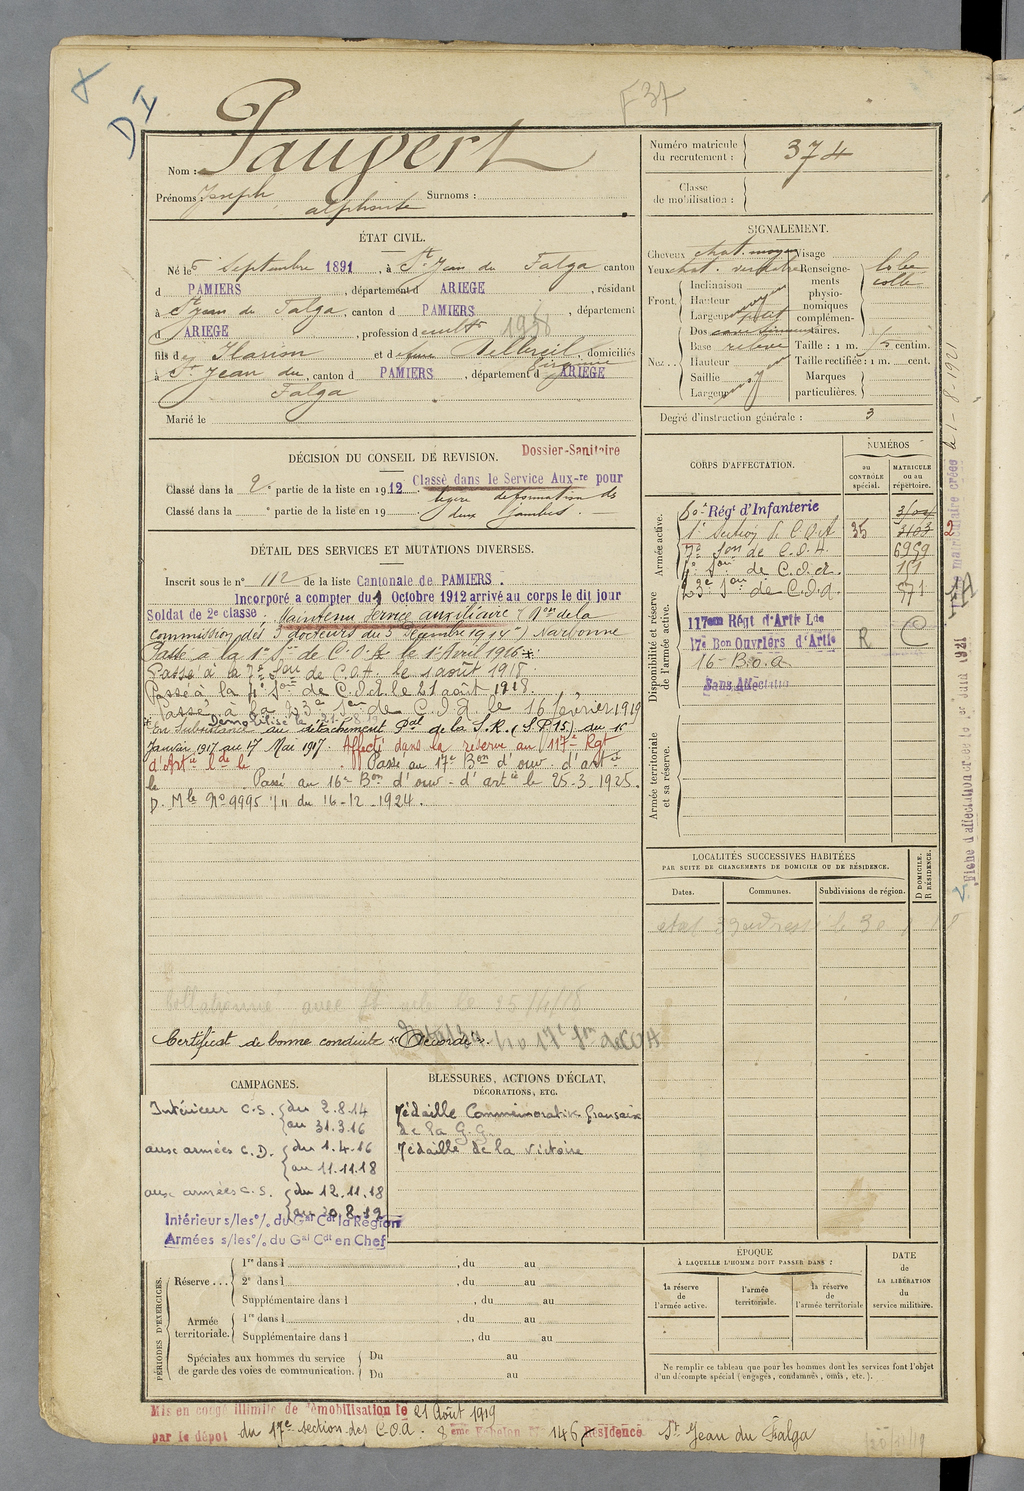 F 37
Nom : Paupert
Prénoms : Joseph alphonse Surnoms :
Numéro matricule du recrutement : 374
Classe de mobilisation :
ÉTAT CIVIL.
Né le 5 Septembre 1891, à St Jean du Falga canton
d PAMIERS, département d ARIEGE, résidant
à St Jean du Falga, canton d PAMIERS, département
d ARIEGE, profession d cultr 1958
fils de Ilarion et de domiciliés
à St Jean du Falga, canton d PAMIERS, département d ARIEGE
Marié le
SIGNALEMENT.
Cheveux chat. moyen
Yeux chat. verdâtre
Front. Inclinaison
Hauteur moyen
Largeur
Nez . . Dos
Base relevé
Hauteur
Saillie moyen
Largeur
Visage
Renseignements physionomiques complémentaires. lobe collé
Taille : 1 m. centim.
Taille rectifiée : 1 m. cent.
Marques particulières.
Degré d'instruction générale : 3
DÉCISION DU CONSEIL DE REVISION. Dossier-Sanitaire
Classé dans la 2e partie de la liste en 1912 Classé dans le Service Aux-re pour
Classé dans la e partie de la liste en 19 légère déformation des
deux jambes. -
DÉTAIL DES SERVICES ET MUTATIONS DIVERSES.
Inscrit sous le n° 112 de la liste Cantonale de PAMIERS.
Incorporé a compter du 1 Octobre 1912 arrivé au corps le dit jour
Soldat de 2e classe, Maintenu Service auxiliaire (Don de la
Commission des 3 docteurs du 5 Décembre 1914) Narbonne
Passé à la 1e Son de C.O.A. le 1 Avril 1916 *
Passé à la 7e Son de C.O.A. le 1 août 1918.
Passé à la 4e Son de C.O.A. le 21 août 1918.
Passé à la 23e Son de C.O.A. le 16 février 1919
Démobilisé le 21.8.19
* En Subsistance au détachement Pal de la S.R. (S.P.15) du 1er
Janvier 1917 au 17 Mai 1917. Affecté dans la réserve au 117e Rgt
d'Artie Lde le Passé au 17e Bon d'ouv. d'artie
le Passé au 16e Bon d'ouv. d'artie le 25-3-1925.
D. Mle No 9995 1/11 du 16-12-1924.
Collationné avec le 25/4/18
Certificat de bonne conduite "Accordé".
CORPS D'AFFECTATION.
NUMÉROS
au CONTRÔLE spécial.
MATRICULE ou au répertoire.
Armée active.
80e Régt d'Infanterie
1e Section de C.O.A 35 3103
7e Son de C.O.A. 6959
4e Son de C.O.A. 151
23e Son de C.O.A. 571
Disponibilité et réserve de l'armée active.
117eme Régt d'Artie Lde
17e Bon Ouvriers d'Artie R C
16e B.O.A
Sans Affectation
Armée territoriale et sa réserve.
LOCALITÉS SUCCESSIVES HABITÉES
PAR SUITE DE CHANGEMENTS DE DOMICILE OU DE RÉSIDENCE.
Dates. Communes. Subdivisions de région. D DOMICILE. R RÉSIDENCE.
CAMPAGNES.
Intérieur C.S. du 2.8.14
au 31.3.16
aux armées C.D. du 1.4.16
au 11.11.18
aux armées C.S. du 12.11.18
au 20.8.19
Intérieur s/les o/. du Gal Cdt la Région
Armées s/les o/. du Gal Cdt en Chef
BLESSURES, ACTIONS D'ÉCLAT,
DÉCORATIONS, ETC.
Médaille Commémorative française
de la G.G.
Médaille de la Victoire
PÉRIODES D'EXERCICES.
Réserve . . . 1re dans l , du au
2e dans l , du au
Supplémentaire dans l , du au
Armée territoriale. 1re dans l , du au
Supplémentaire dans l , du au
Spéciales aux hommes du service de garde des voies de communication. Du au
Du au
ÉPOQUE
À LAQUELLE L'HOMME DOIT PASSER DANS :
la réserve de l'armée active.
l'armée territoriale.
la réserve de l'armée territoriale
DATE DE LA LIBÉRATION du service militaire.
Ne remplir ce tableau que pour les hommes dont les services font l'objet
d'un décompte spécial (engagés, condamnés, omis, etc.).
Mis en congé illimité de démobilisation le 21 Août 1919
par le dépôt du 17e section des C.O.A. 8eme Echelon N° 146 Résidence St Jean du Falga
Fiche d'affectation créée le 1er Juin 1921
matriculaire créée le 1-8-1921